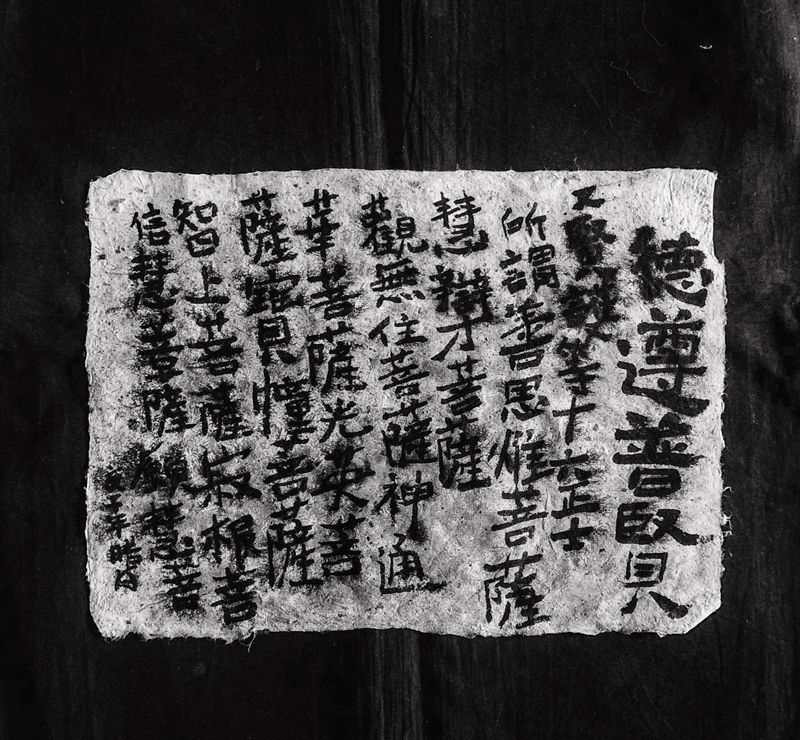 德遵普賢
又賢護等十六正士
所謂善思惟菩薩
慧辯才菩薩
觀無住菩薩神通
華菩薩光英菩
薩寶幢菩薩
智上菩薩寂根菩
信慧菩薩願慧菩
子年